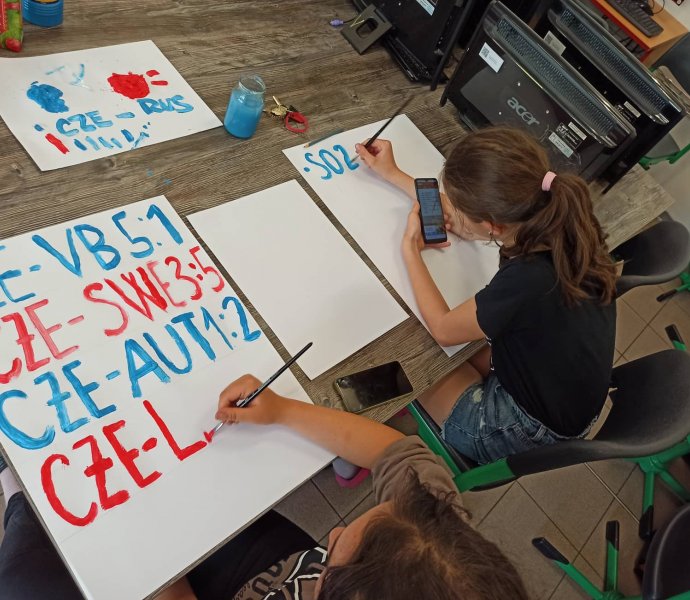 CZE-RUS
CZE-VB5:1
CZE-SWE3:5
CZE-AUT1:2
CZE-L
·SO2
acer